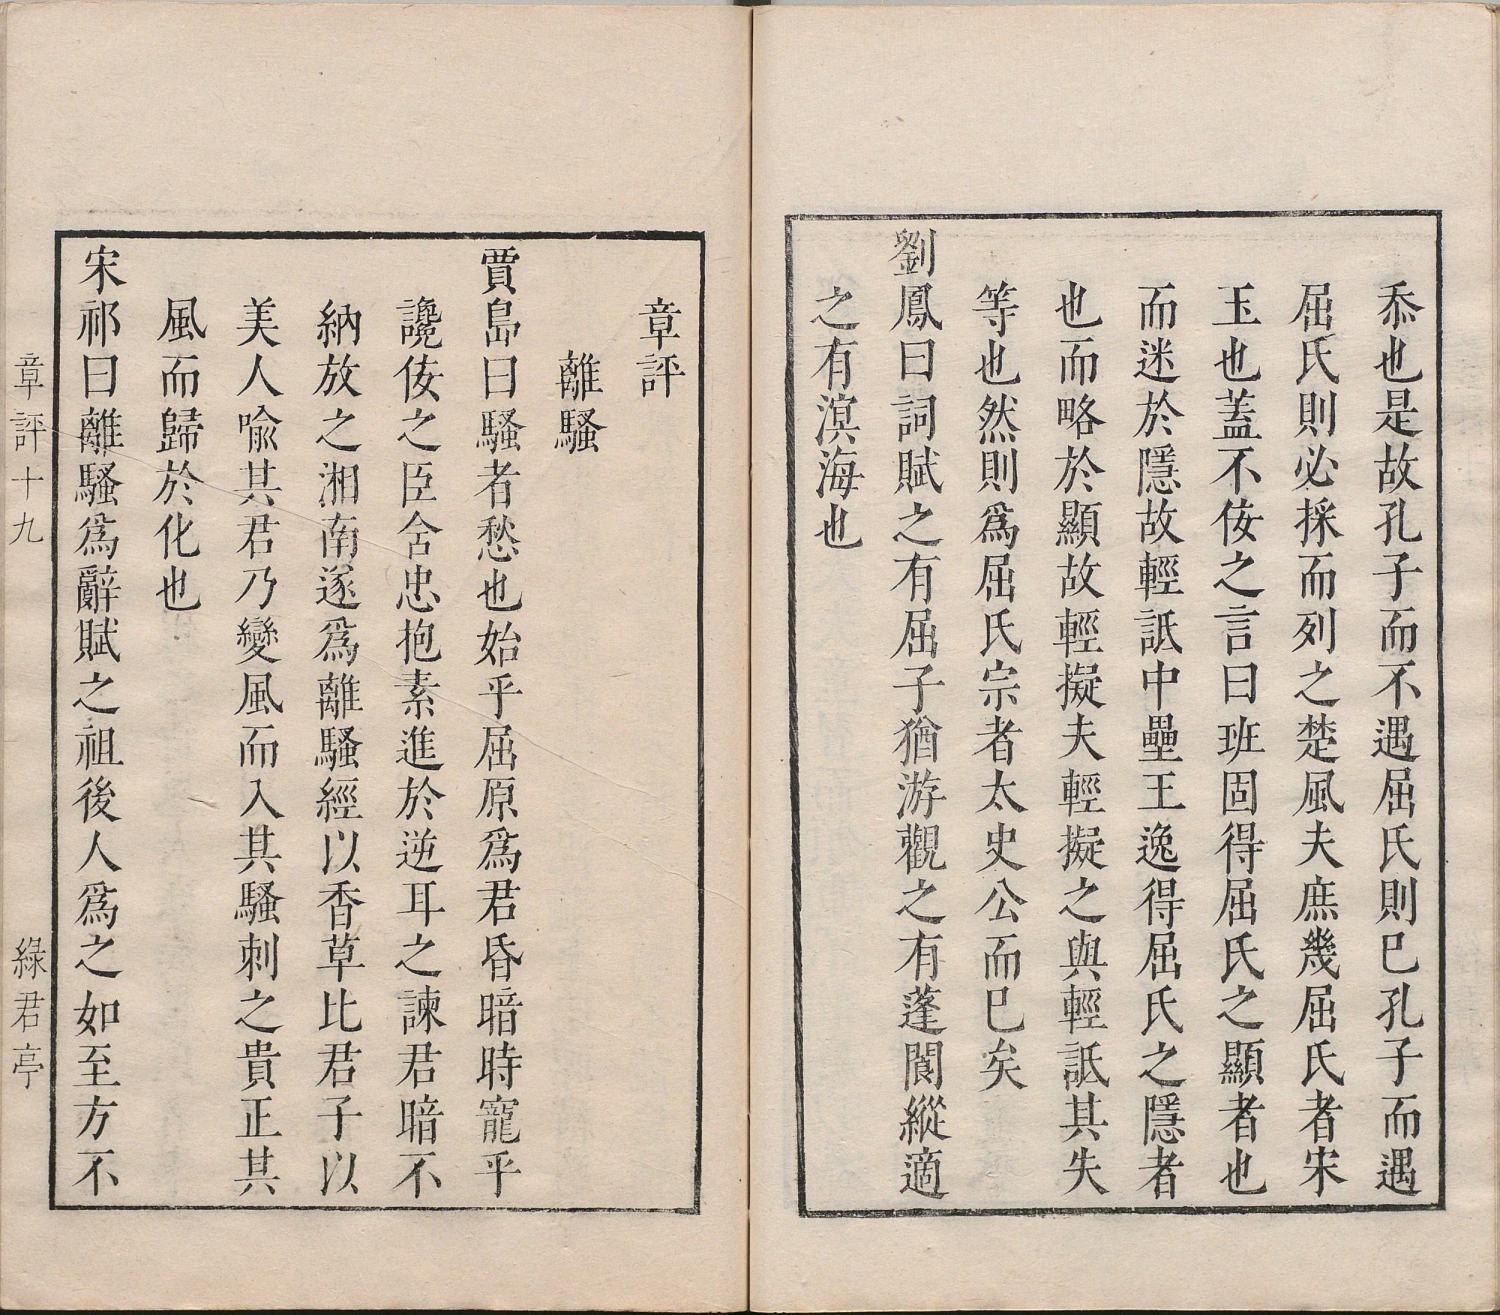 忝也是故孔子而不遇屈氏則已孔子而遇
屈氏則必採而列之楚風夫庶幾屈氏者宋
玉也蓋不佞之言曰班固得屈氏之顯者也
而迷於隱故輕詆中壘王逸得屈氏之隱者
也而略於顯故輕擬夫輕擬之與輕詆其失
等也然則爲屈氏宗者太史公而已矣
劉鳳曰詞賦之有屈子猶游觀之有蓬閬縱適
之有溟海也
章評
離騷
賈島曰騷者愁也始乎屈原爲君昏暗時寵乎
讒佞之臣含忠抱素進於逆耳之諫君暗不
納放之湘南遂爲離騷經以香草比君子以
美人喩其君乃變風而入其騷刺之貴正其
風而歸於化也
宋祁曰離騷爲辭賦之祖後人爲之如至方不
章評十九
綠君亭